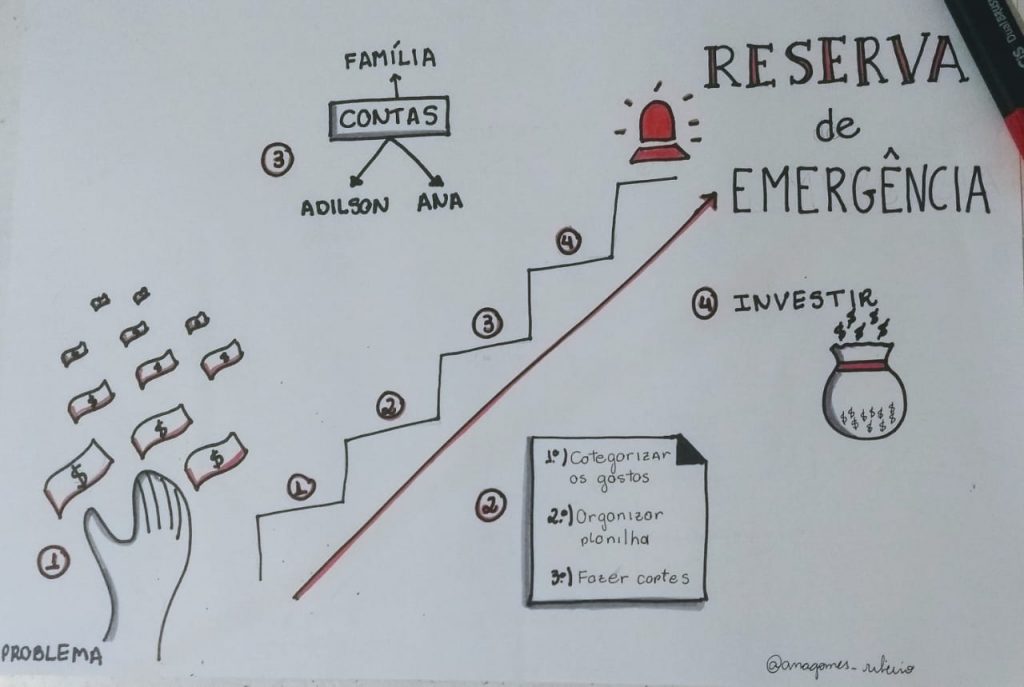 RESERVA
de
EMERGÊNCIA
FAMÍLIA
CONTAS
3
ADILSON ANA
4
3
2
1
4 INVESTIR
$ $ $ $ $
$ $ $ $ $ $ $ $ $
$
$
$
$
$
$
1
PROBLEMA
2
1º) Cotegorizar
os gastos
2º) Organizar
planilha
3º) Fazer cortes
@anagomes_ribeiro
Dual BRUSH